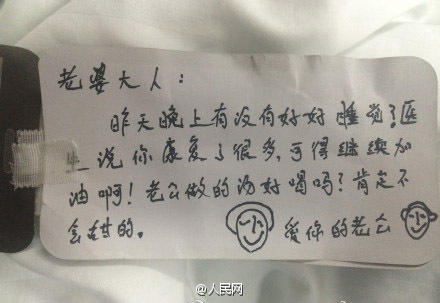 老婆大人：
昨天晚上有没有好好睡觉？医
生说你康复了很多，可得继续加
油啊！老公做的汤好喝吗？肯定不
会甜的。 爱你的老公
@人民网